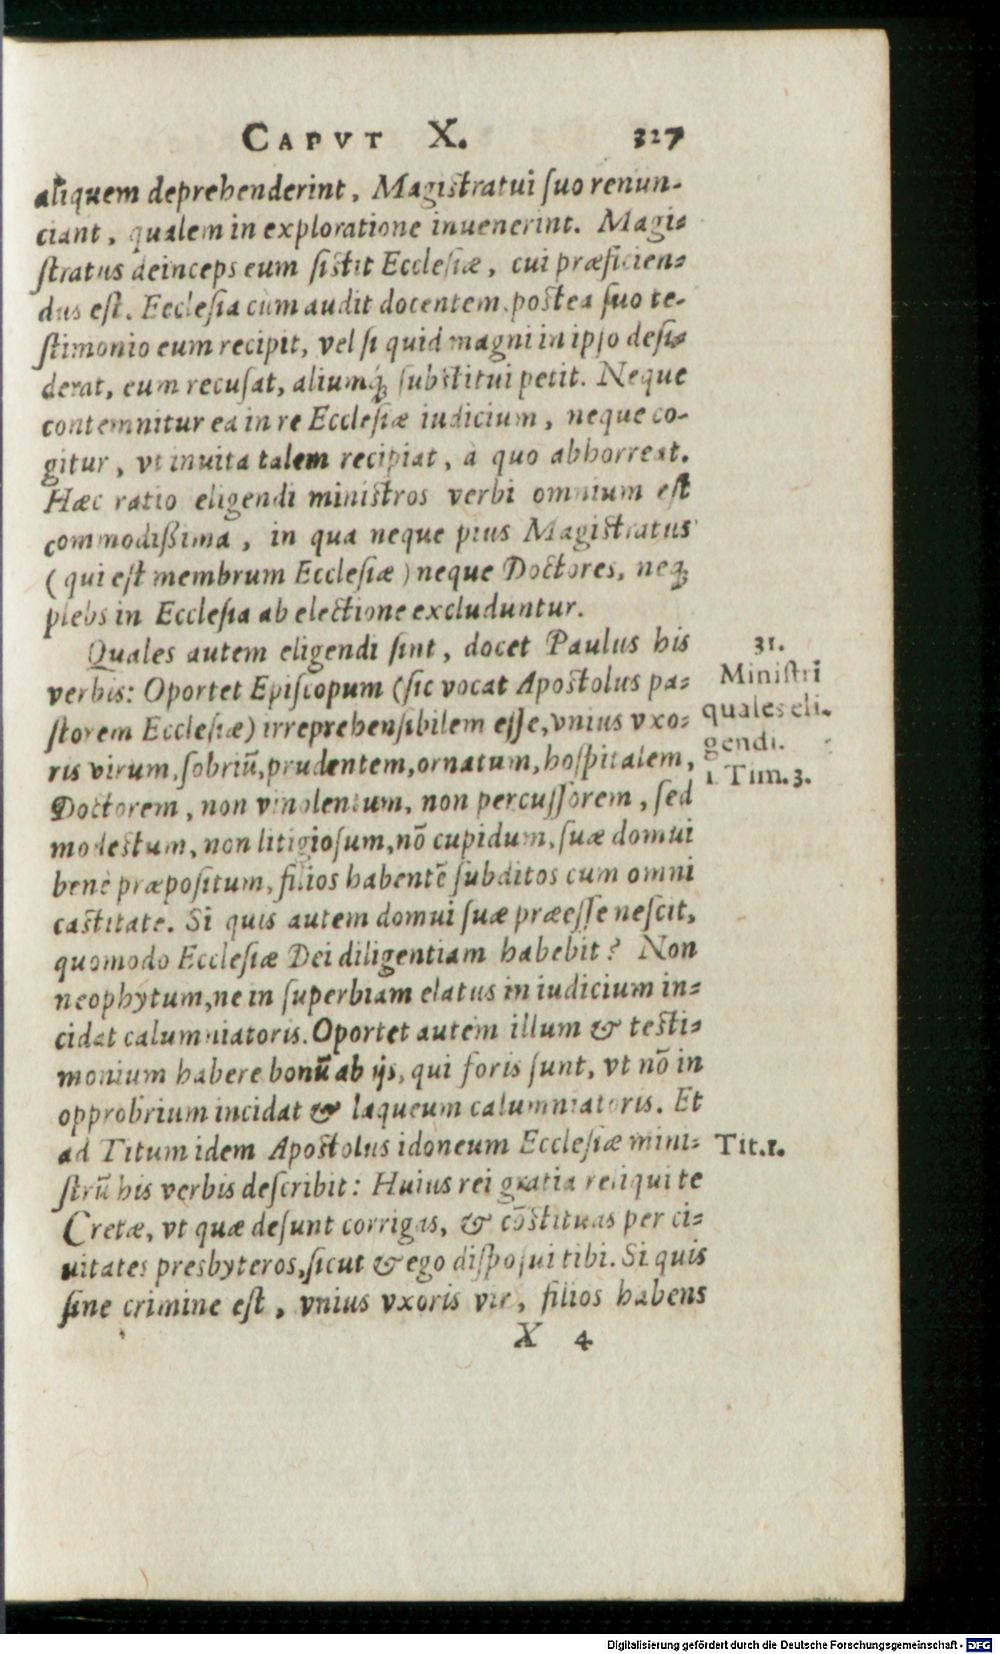 CAPVT X. 327
aliquem deprehenderint, Magistratui ſuo renun-
ciant, qualem in exploratione inuenerint. Magi-
ſtratus deinceps eum ſistit Ecclesiæ, cui præficien-
dus eſt. Ecclesia cùm audit docentem, postea ſuo te-
ſtimonio eum recipit, vel ſi quid magni in ipſo deſi-
derat, eum recuſat, aliumq́; ſubstitui petit. Neque
contemnitur ea in re Eccleſiæ iudicium, neque co-
gitur, vt inuita talem recipiat, à quo abhorreat.
Hæc ratio eligendi ministros verbi omnium eſt
commodiſſima, in qua neque pius Magistratus
(qui eſt membrum Eccleſiæ) neque Doctores, neq;
plebs in Eccleſia ab electione excluduntur.
Quales autem eligendi ſint, docet Paulus his
31.
Miniſtri
quales eli-
gendi.
1 Tim. 3.
verbis: Oportet Epiſcopum (ſic vocat Apostolus pa-
ſtorem Eccleſiæ) irreprehenſibilem eſſe, vnius vxo-
ris virum, ſobriū, prudentem, ornatum, hoſpitalem,
Doctorem, non vinolentum, non percuſſorem, ſed
modestum, non litigioſum, nō cupidum, ſuæ domui
benè præpoſitum, filios habentē ſubditos cum omni
castitate. Si quis autem domui ſuæ præeſſe neſcit,
quomodo Eccleſiæ Dei diligentiam habebit? Non
neophytum, ne in ſuperbiam elatus in iudicium in-
cidat calumniatoris. Oportet autem illum & testi-
monium habere bonū ab ijs, qui foris ſunt, vt nō in
opprobrium incidat & laqueum calumniatoris. Et
ad Titum idem Apostolus idoneum Eccleſiæ mini-
Tit. 1.
ſtrū his verbis deſcribit: Huius rei gratia reliqui te
Cretæ, vt quæ deſunt corrigas, & cōstituas per ci-
uitates presbyteros, ſicut & ego diſpoſui tibi. Si quis
ſine crimine eſt, vnius vxoris vir, filios habens
X 4
Digitalisierung gefördert durch die Deutsche Forschungsgemeinschaft - DFG